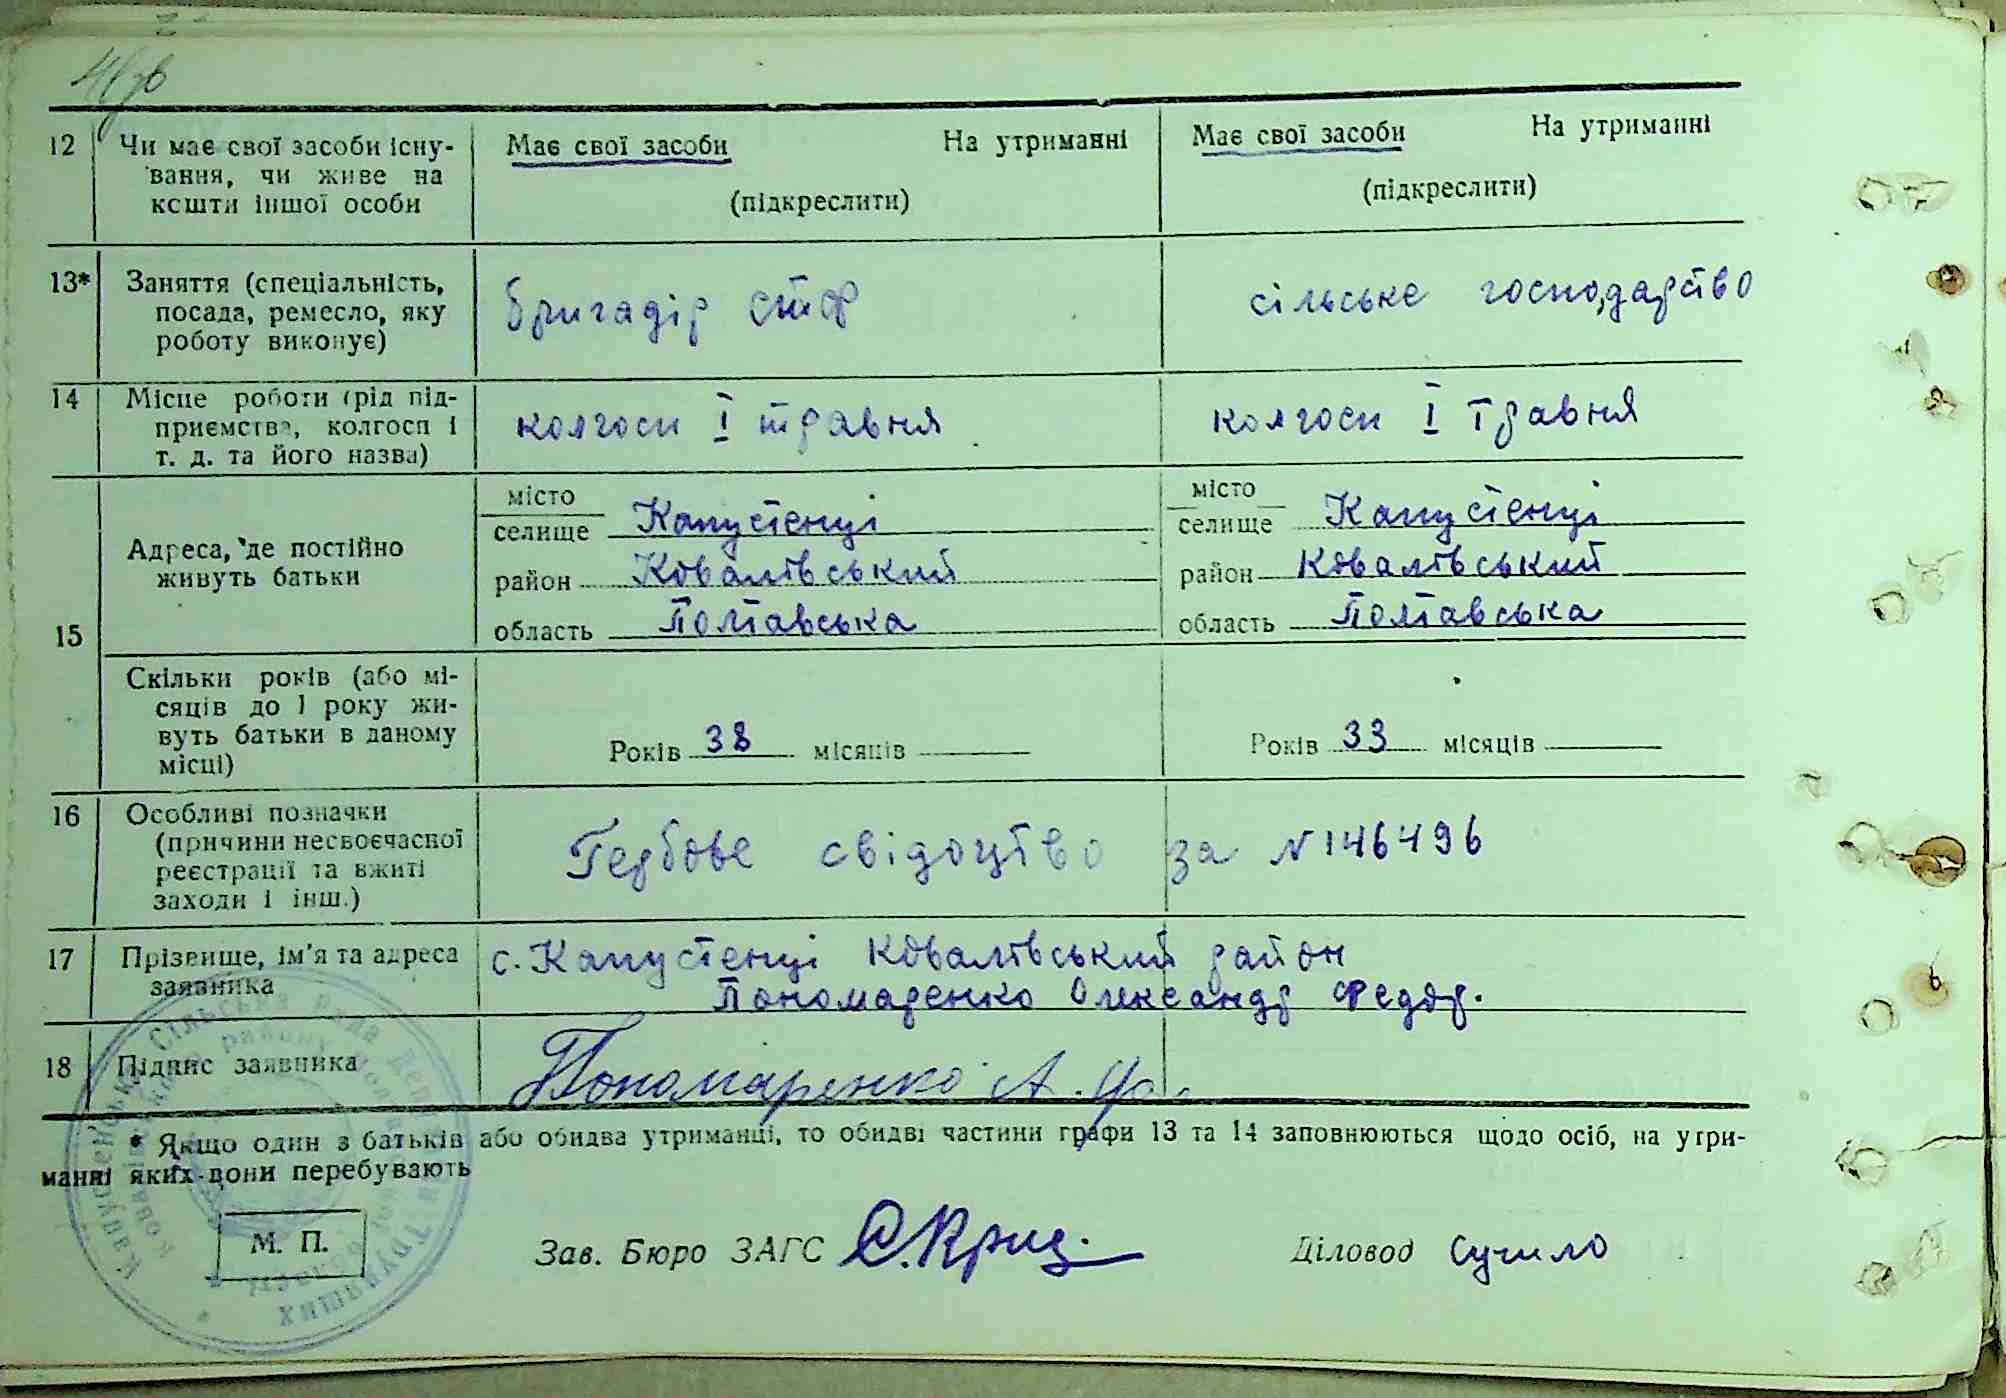 12 Чи має свої засоби існу- Має свої засоби На утриманні Має свої засоби На утриманні
вання, чи живе на
кошти іншої особи (підкреслити) (підкреслити)
13* Заняття (спеціальність, бригадір СТФ сільське господарство
посада, ремесло, яку
роботу виконує)
14 Місце роботи (рід під- колгосп І травня колгосп І травня
приємства, колгосп і
т. д. та його назва)
15 Адреса, де постійно живуть батьки
місто місто
селище Капустенці селище Капустенці
район Ковалівський район Ковалівський
область Полтавська область Полтавська
Скільки років (або мі-
сяців до 1 року жи-
вуть батьки в даному Років 38 місяців Років 33 місяців
місці)
16 Особливі позначки
(причини несвоєчасної Гербове свідоцтво за N 146496
реєстрації та вжиті
заходи і інш.)
17 Прізвище, ім'я та адреса с. Капустенці Ковалівський район
заявника Пономаренко Олександр Федор.
18 Підпис заявника Пономаренко А. Ф.
* Якщо один з батьків або обидва утриманці, то обидві частини графи 13 та 14 заповнюються щодо осіб, на утри-
манні яких вони перебувають
М. П. Зав. Бюро ЗАГС Діловод Сучило